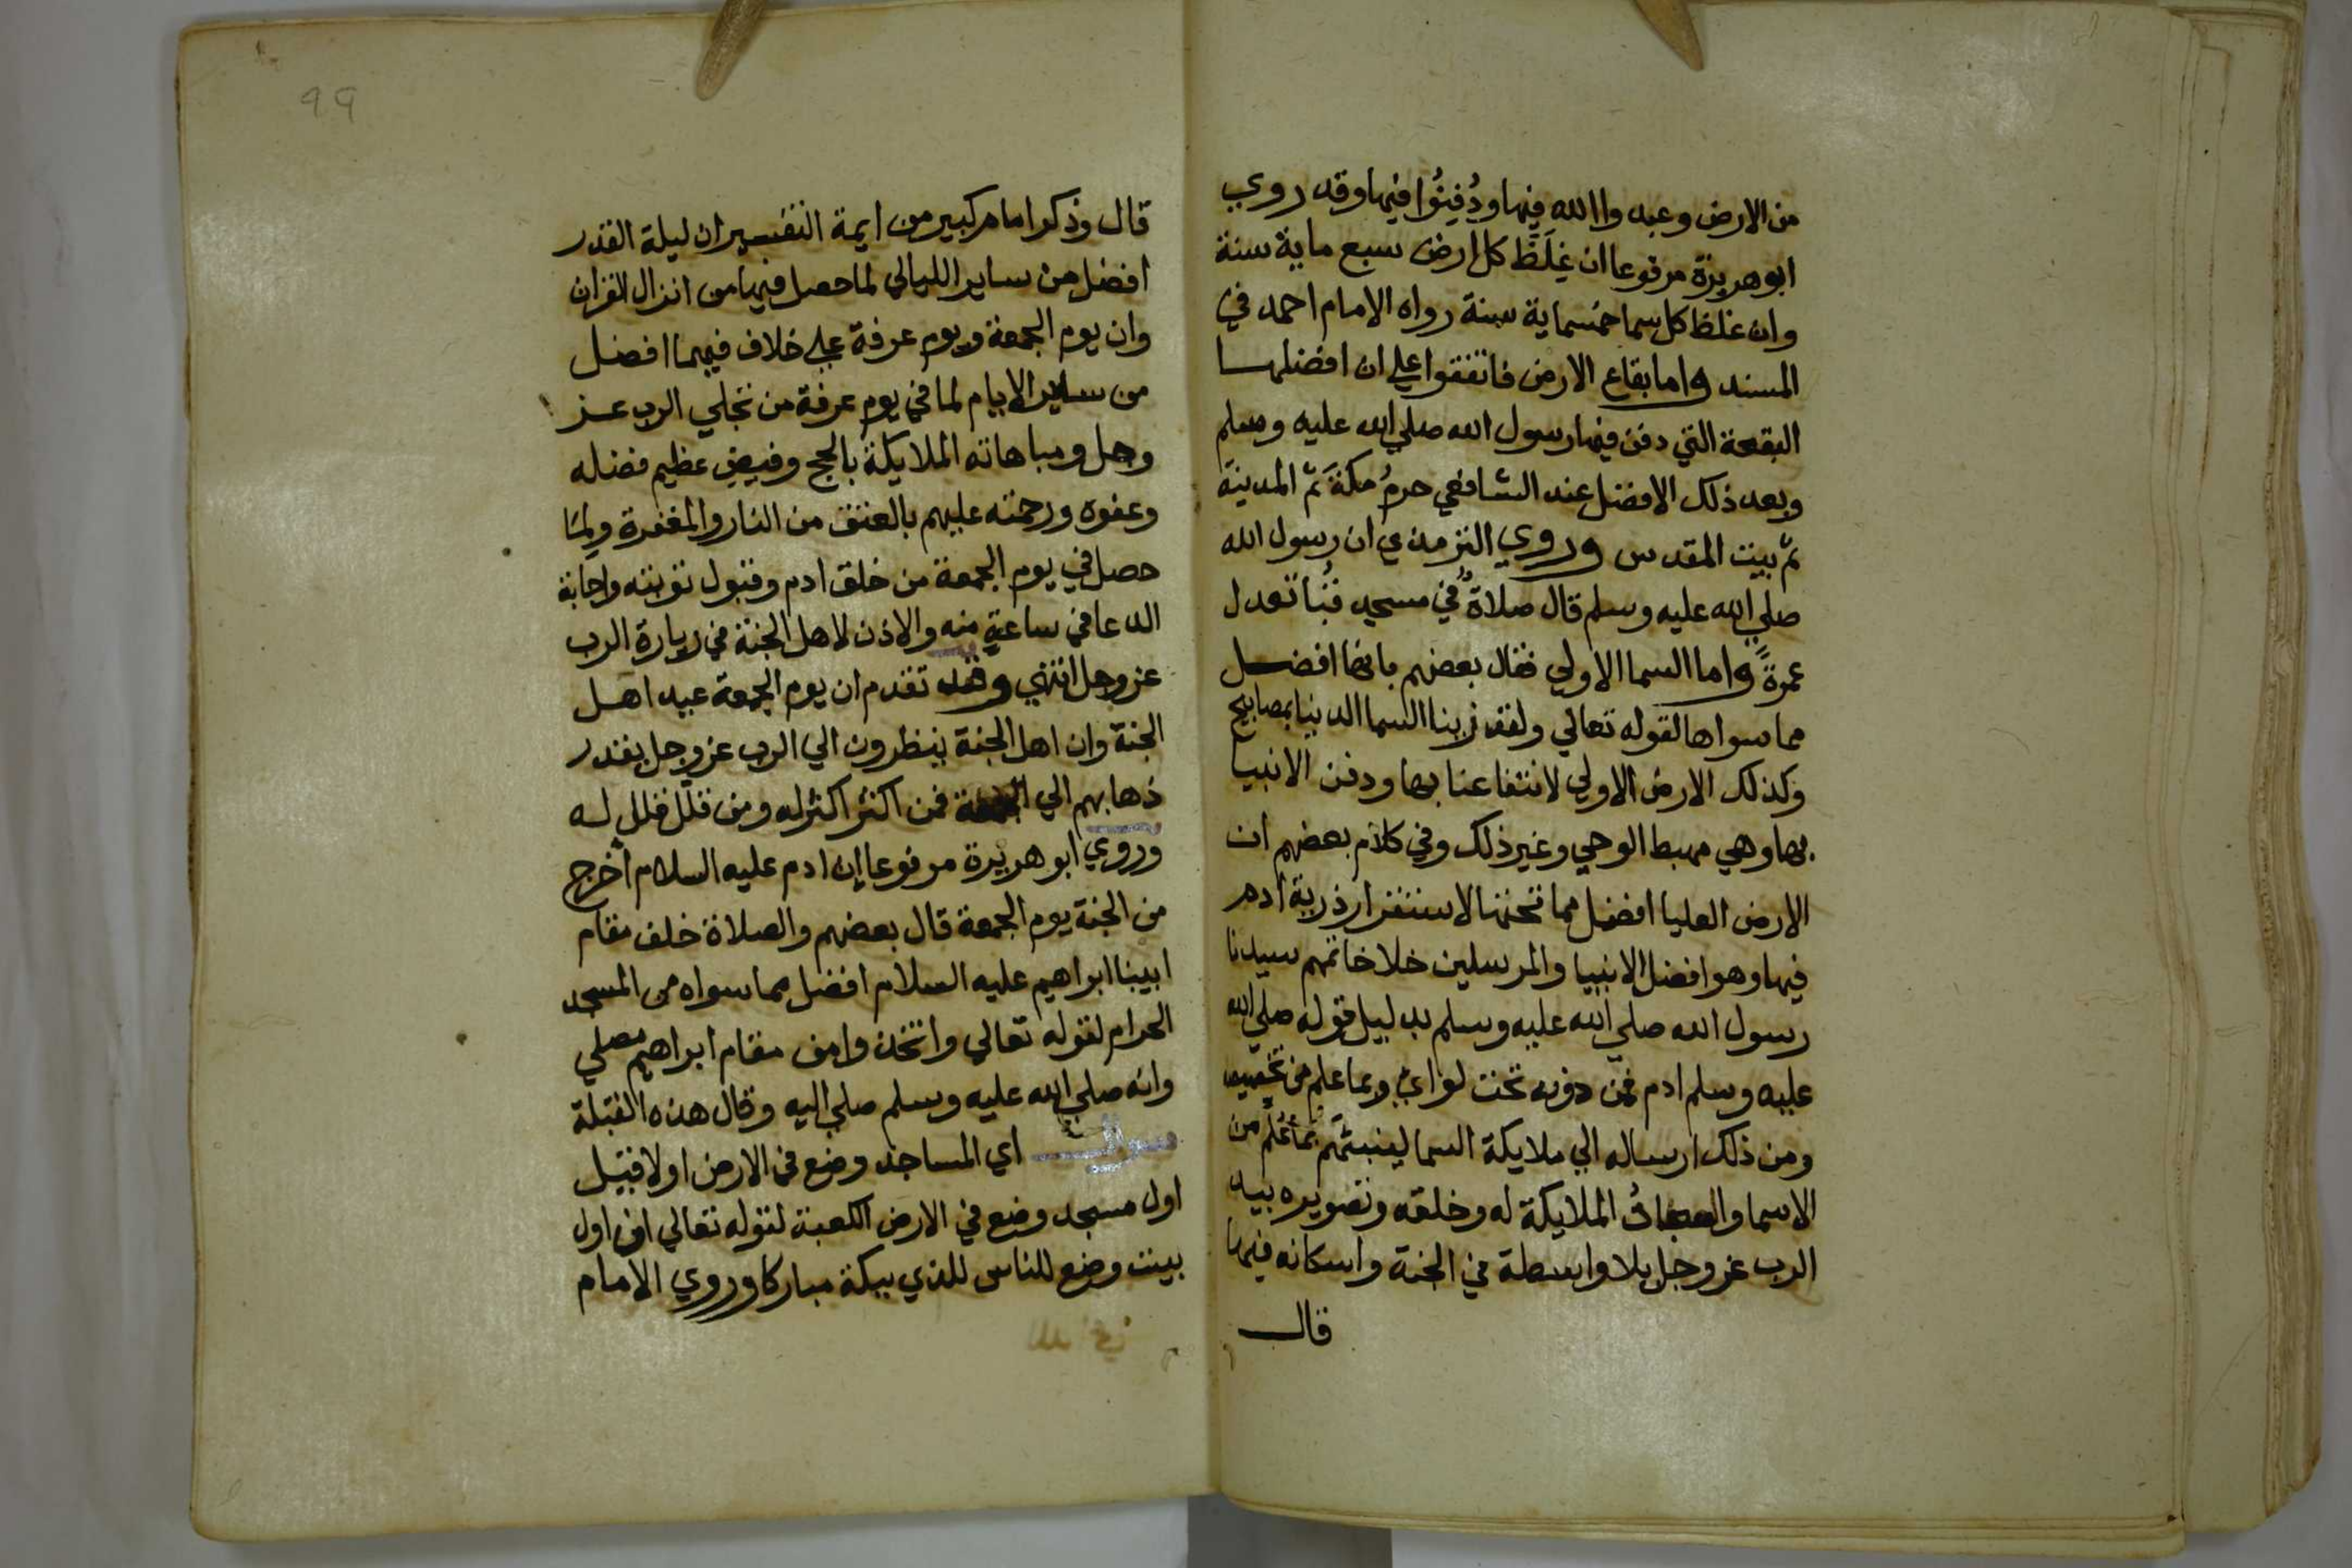 من الارض وعبدوا الله فيها ودُفِنُوا فيها وقد روي
ابو هريرة مرفوعا ان غِلَظَ كل ارض سبع ماية سنة
وان غلظ كل سما خمسماية سنة رواه الامام احمد في
المسند واما بقاع الارض فاتفقوا علي ان افضلها
البقعة التي دفن فيها رسول الله صلي الله عليه وسلم
وبعد ذلك الافضل عند الشافعي حرمُ مكةَ ثم المدينة
ثم بيت المقدس وروي الترمذي ان رسول الله
صلي الله عليه وسلم قال صلاةٌ في مسجد قُبا تعدل
عمرةً واما السما الاولي فقال بعضهم بانها افضل
مما سواها لقوله تعالي ولقد زينا السما الدنيا بمصابيح
وكذلك الارض الاولي لانتفاعنا بها ودفن الانبيا
بها وهي مهبط الوحي وغير ذلك وفي كلام بعضهم ان
الارض العليا افضل مما تحتها لاستقرار ذرية ادم
فيها وهو افضل الانبيا والمرسلين خلا خاتمهم سيدنا
رسول الله صلي الله عليه وسلم بدليل قوله صلي الله
عليه وسلم ادم فمن دونه تحت لواي وبما علم من تخصيصه
ومن ذلك ارساله الي ملايكة السما لينبئهم بما عُلِّم من
الاسما و الملايكة له وخلقه وتصويره بيد
الرب عز وجل بلا واسطة في الجنة واسكانه فيها
قال
99
قال وذكر امام كبير من ايمة التفسير ان ليلة القدر
افضل من ساير الليالي لما حصل فيها من انزال القران
وان يوم الجمعة ويوم عرفة علي خلاف فيهما افضل
من ساير الايام لما في يوم عرفة من تجلي الرب عز
وجل ومباهاته الملايكة بالحج وفيض عظيم فضله
وعفوه ورحمته عليهم بالعتق من النار والمغفرة ولما
حصل في يوم الجمعة من خلق ادم وقبول توبته واجابة
الدعا في ساعةٍ منه والاذن لاهل الجنة في زيارة الرب
عز وجل انتهي وقد تقدم ان يوم الجمعة عيد اهل
الجنة وان اهل الجنة ينظرون الي الرب عز وجل بقدر
ذهابهم الي الجمعة فمن اكثر اكثر له ومن قلل قلل له
وروي ابو هريرة مرفوعا ان ادم عليه السلام اخرج
من الجنة يوم الجمعة قال بعضهم والصلاة خلف مقام
ابينا ابراهيم عليه السلام افضل مما سواه من المسجد
الحرام لقوله تعالي واتخذوا من مقام ابراهيم مصلي
وانه صلي الله عليه وسلم صلي اليه وقال هذه القبلة
سوال اي المساجد وضع في الارض اولا قيل
اول مسجد وضع في الارض الكعبة لقوله تعالي ان اول
بيت وضع للناس للذي ببكة مباركا وروي الامام